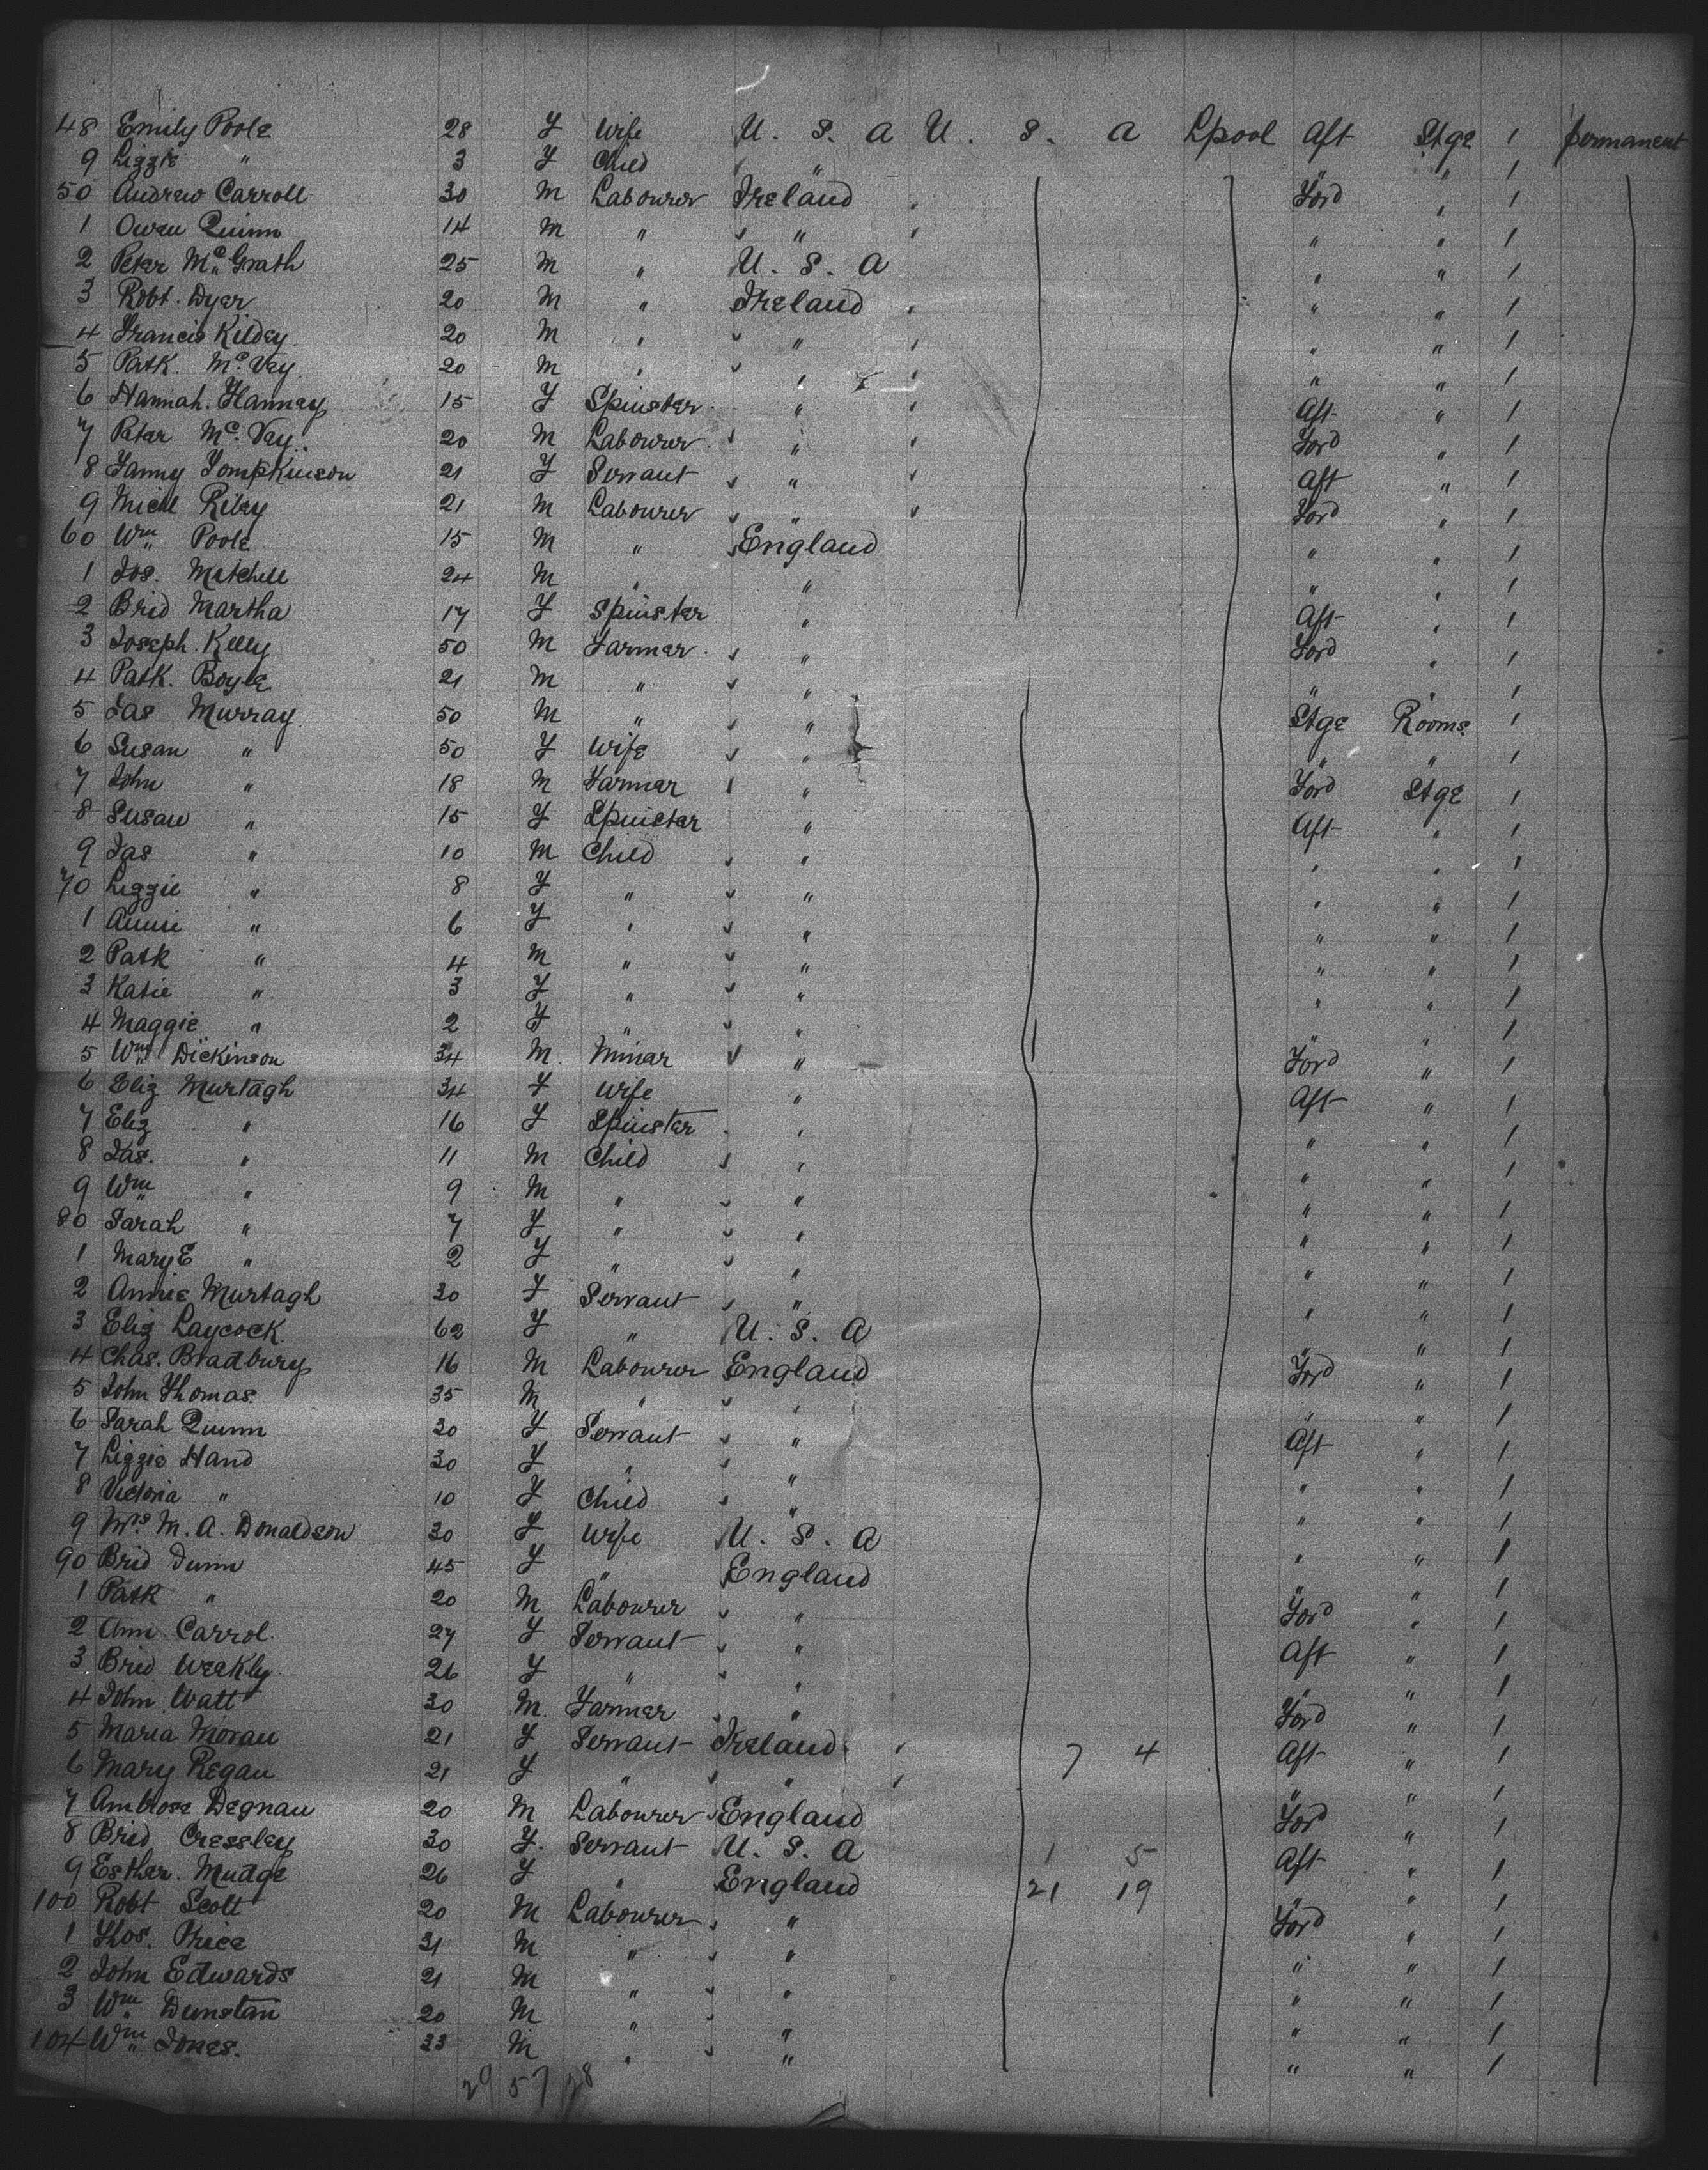 48 Emily Poole 28 F Wife U. S. A U. S. A Lpool Aft Stge 1 permanent
9 Lizzie " 3 F Child " " 1
50 Andrew Carroll 30 M Labourer Ireland Ford " 1
1 Owen Quinn 14 M " " " " 1
2 Peter Mc Grath 25 M " U. S. A " " 1
3 Robt. Dyer 20 M " Ireland " " 1
4 Francis Kildey 20 M " " " " 1
5 Patk. Mc. Vey 20 M " " " " 1
6 Hannah. Hannay 15 F Spinster " Aft " 1
7 Peter Mc. Vey 20 M Labourer " Ford " 1
8 Fanny Tompkinson 21 F Servant " Aft " 1
9 Michl Riley 21 M Labourer " Ford " 1
60 Wm Poole 15 M " England " " 1
1 Jos. Mitchell 24 M " " " " 1
2 Brid Martha 17 F Spinster " Aft " 1
3 Joseph. Kelly 50 M Farmer " Ford " 1
4 Patk. Boyle 21 M " " " " 1
5 Jas Murray 50 M " " Stge Rooms 1
6 Susan " 50 F Wife " " " 1
7 John " 18 M Farmer " Ford Stge 1
8 Susan " 15 F Spinster " Aft " 1
9 Jas " 10 M Child " " " 1
70 Lizzie " 8 F " " " " 1
1 Annie " 6 F " " " " 1
2 Patk " 4 M " " " " 1
3 Katie " 3 F " " " " 1
4 Maggie " 2 F " " " " 1
5 Wm Dickinson 34 M Miner " Ford " 1
6 Eliz Murtagh 34 F Wife " Aft " 1
7 Eliz " 16 F Spinster " " " 1
8 Jas. " 11 M Child " " " 1
9 Wm " 9 M " " " " 1
80 Sarah " 7 F " " " " 1
1 Mary E " 2 F " " " " 1
2 Annie Murtagh 30 F Servant " " " 1
3 Eliz Laycock 62 F " U. S. A " " 1
4 Chas. Bradbury 16 M Labourer England Ford " 1
5 John Thomas 35 M " " " " 1
6 Sarah Quinn 30 F Servant " Aft " 1
7 Lizzie Hand 30 F " " " " 1
8 Victoria " 10 F Child " " " 1
9 Mrs. M. A. Donaldson 30 F Wife U. S. A " " 1
90 Brid Dunn 45 F " England " " 1
1 Patk " 20 M Labourer " Ford " 1
2 Ann Carrol 27 F Servant " Aft " 1
3 Brid Weakly 26 F " " " " 1
4 John Watt 30 M. Farmer " Ford " 1
5 Maria Moran 21 F Servant Ireland 7 4 Aft " 1
6 Mary Regan 21 F " " " " 1
7 Ambrose Degnan 20 M Labourer England Ford " 1
8 Brid Cressley 30 F. Servant U. S. A 1 5 Aft " 1
9 Esther. Mudge 26 F " England 21 19 " " 1
100 Robt Scott 20 M Labourer " Ford " 1
1 Thos. Price 21 M " " " " 1
2 John Edwards 21 M " " " " 1
3 Wm Dunstan 20 M " " " " 1
104 Wm Jones. 33 M " " " " 1
29 57 28